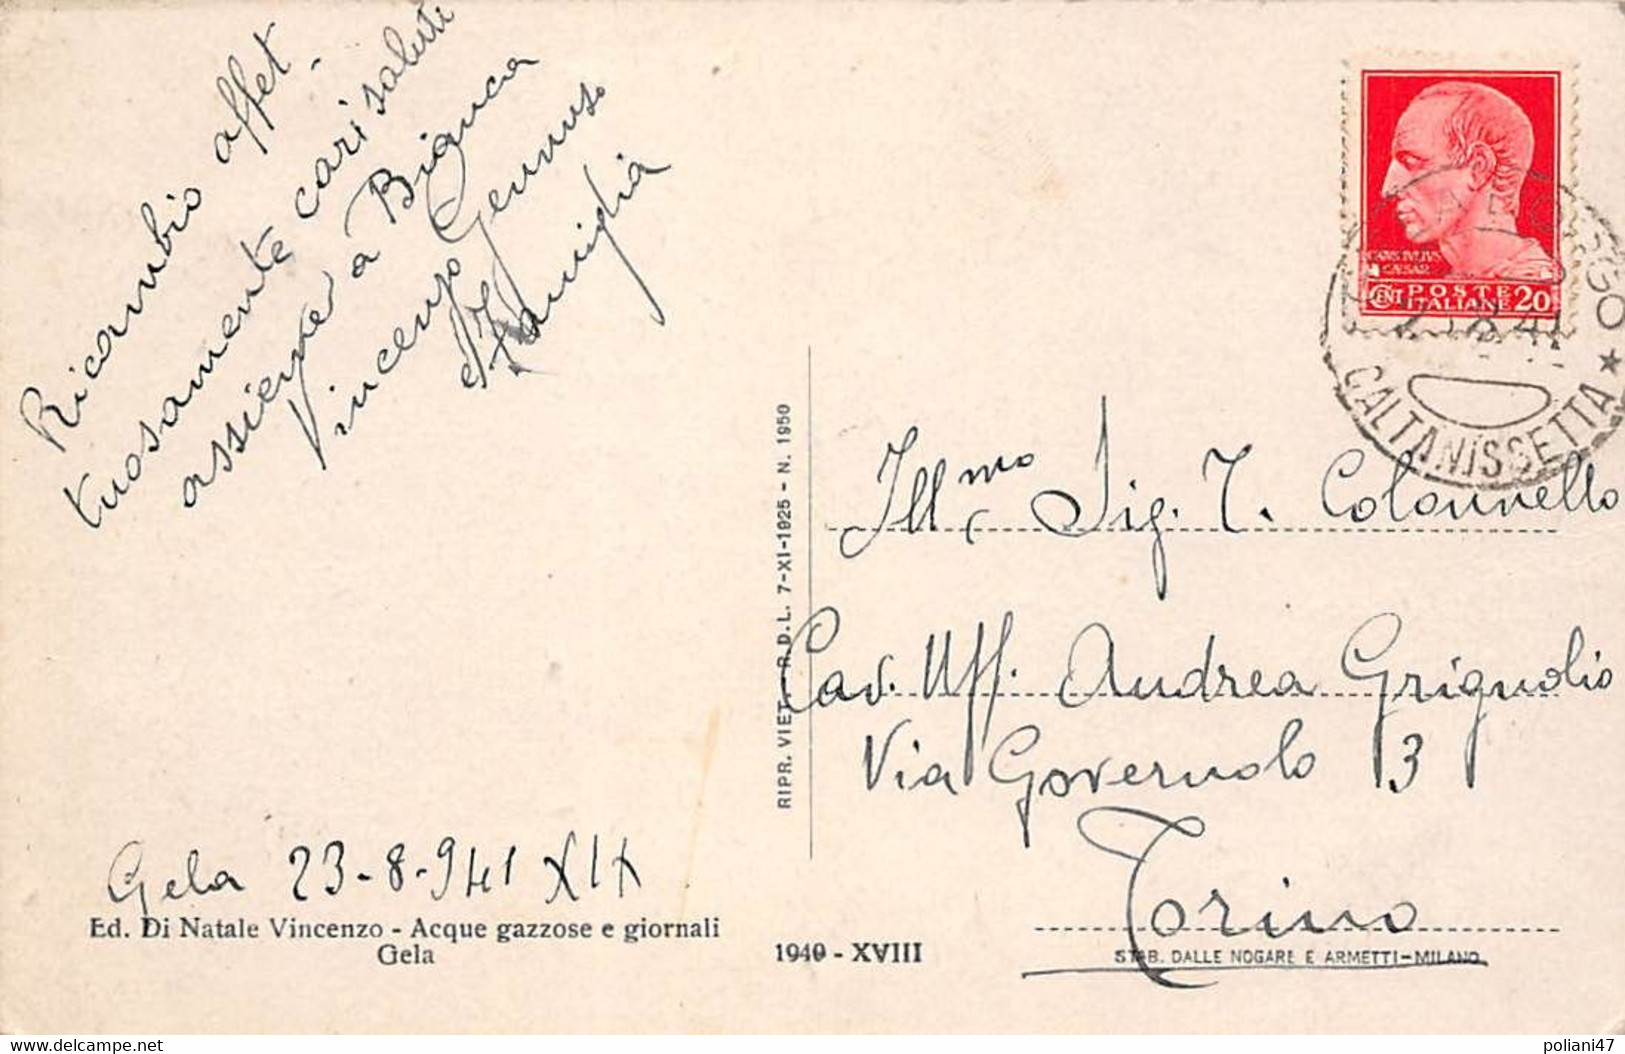 Ricambio affet-
tuosamente cari saluti
assieme a Bianca
Vincenzo Gennuso
e Famiglia
Gela 23-8-941 XIX
Ed. Di Natale Vincenzo - Acque gazzose e giornali
Gela
RIPR. VIET. R.D.L. 7-XI-1925 - N. 1950
1940 - XVIII
CAIVS IVLIVS
CAESAR
CENT POSTE
ITALIANE 20
CALTANISSETTA
Ill.mo Sig. T. Colonnello
Cav. Uff. Andrea Grignolio
Via Governolo 3
Torino
STAB. DALLE NOGARE E ARMETTI-MILANO
delcampe.net
poliani47